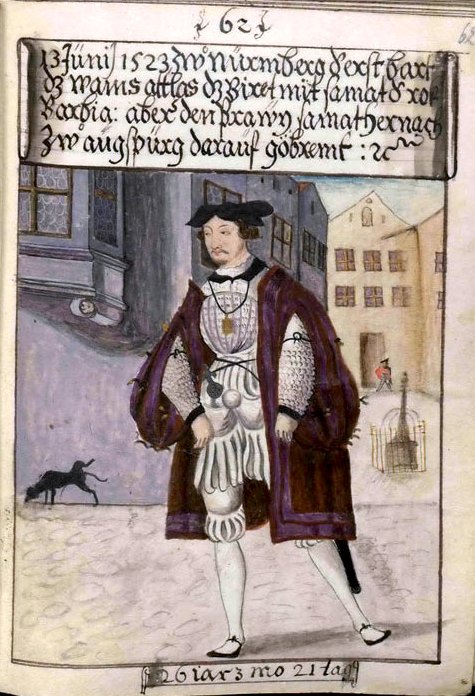 62
62
13 Jünij 1523 zwº Nürmberg d erst bart
dz wams attlas dz Biret mit samat d rok
Barchia: aber den prawn samat hernach
Zw augspürg darauf gebremt : ⁊c
26 iar 3 mo 21 tag